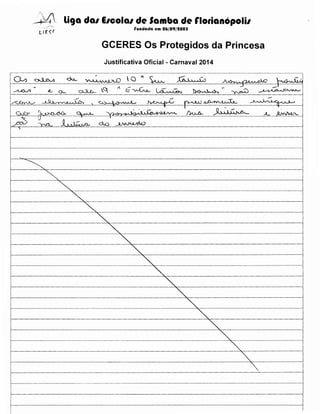 Liga das Escolas de Samba de Florianópolis
Fundada em 06/09/2005
LIESF
GCERES Os Protegidos da Princesa
Justificativa Oficial - Carnaval 2014
As alas de número 10 " Seu talento rompendo frontei
ras" e a ala 19 " Entre tantos Sonhos" não estavam
com elementos, conforme script previamente entregue
ao jurado que possibilitassem sua leitura e inser
ção na leitura do enredo